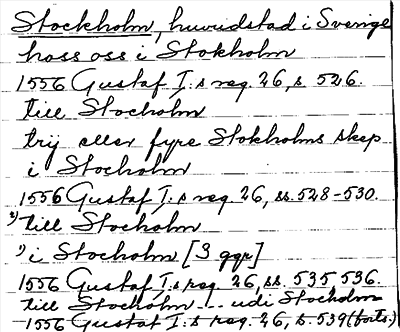 Stockholm, huvudstad i Sverige
hoss oss i Stokholm
1556 Gustaf I:s reg. 26, s. 526.
till Stocholm
trij eller fyre Stokholms skep
i Stocholm
1556 Gustaf I:s reg. 26, ss. 528-530.
2) till Stocholm
1) i Stocholm [3 ggr]
1556 Gustaf I:s reg. 26, ss. 535, 536.
till Stocholm ... udi Stocholm
1556 Gustaf I:s reg. 26, s. 539 (forts.)